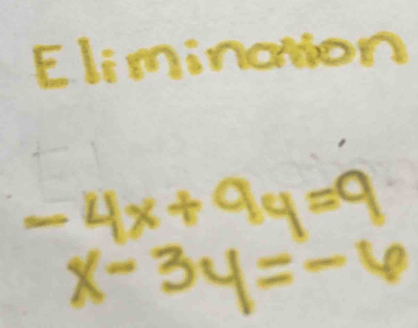 Elimination
-4x+9y=9
x-3y=-6